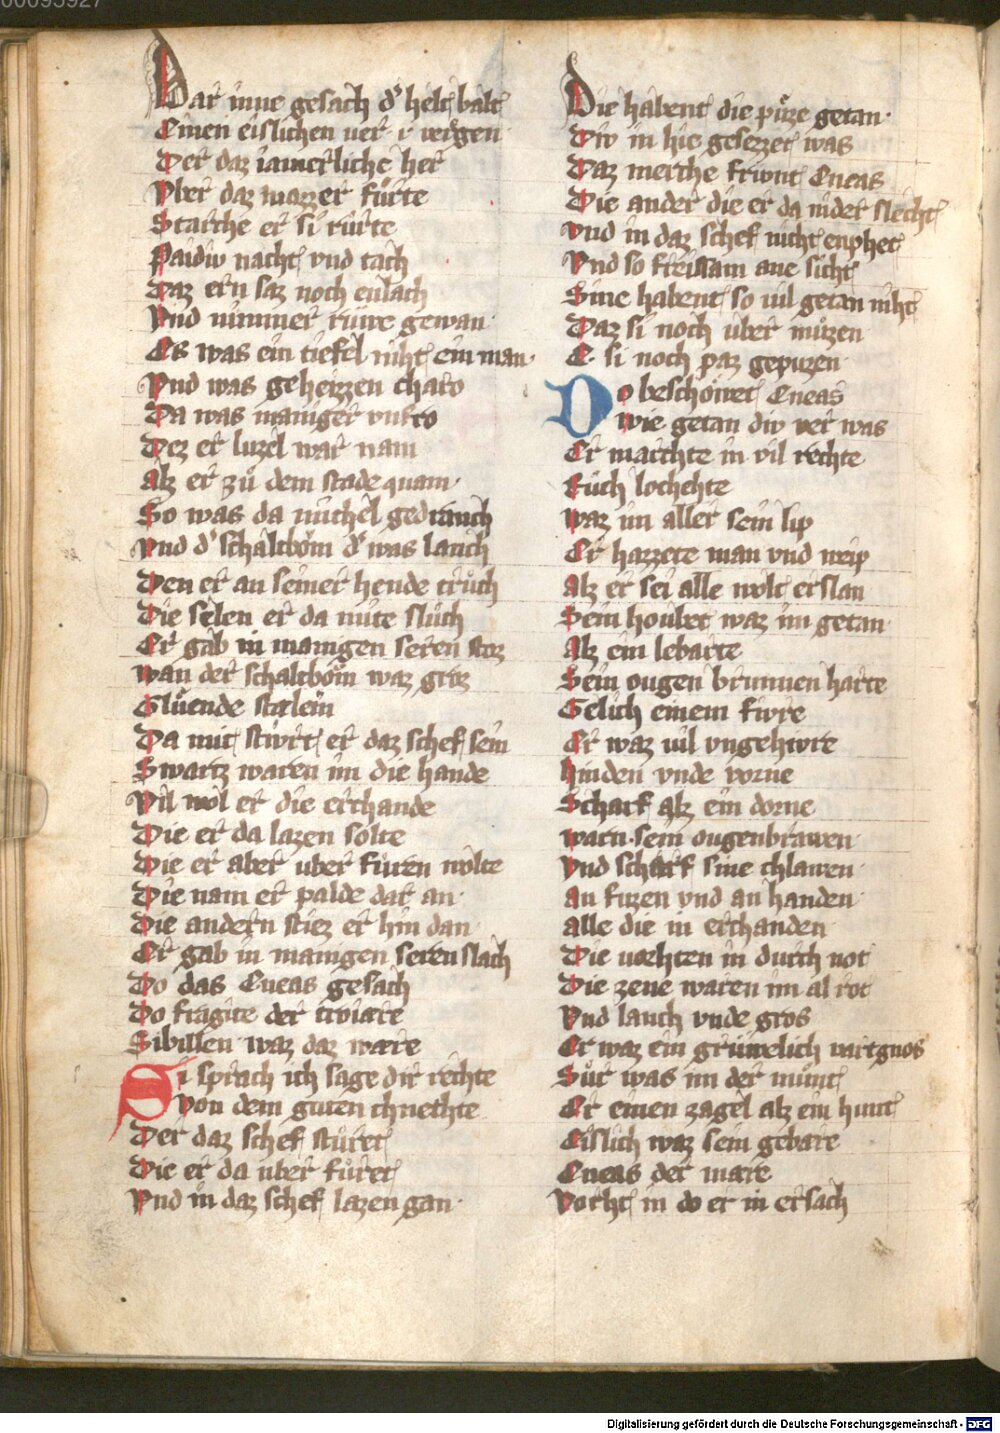 00095927
Dar inne gesach d' helt balt
Einen eislichen uer v vergen
Der daz iamerliche her
Vber daz wazzer fůrte
Starche er si růrte
Paidiv nacht vnd tach
Daz ern saz noch enlach
Vnd nimmer růwe gewan
Es was ein tiefel niht ein man
Vnd was geheizzen charo
Da was maniger vnfro
Dez er luzel war nam
Alz er zů dem stade quam
So was da michel gedranch
Vnd d' schaltbom d' was lanch
Den er an seiner hende trůch
Die selen er da mite slůch
Er gab in manigen seren stoz
Wan der schaltbom waz groz
Glůende stælein
Da mit stivrt er daz schef sein
Swartz waren im die hande
Vil wol er die erchande
Die er da lazen solte
Die er aber uber fůren wolte
Die nam er palde dar an
Die andern stiez er hin dan
Er gab in manigen seren slach
Do das Eneas gesach
Do fragite der troiare
Sibillen waz daz ware
Si sprach ich sage dir rechte
Von dem guten chnechte
Der daz schef stůret
Die er da uber fůret
Vnd in daz schef lazen gan
Die habent die půze getan
Div in hie gesezzet was
Daz merche friunt Eneas
Die ander die er da nider slecht
Vnd in daz schef nicht enphet
Vnd so freissam ane sicht
Sine habent so uil getan niht
Daz si noch uber můzen
E si noch paz gepuzen
Do beschowet Eneas
Wie getan div ver was
Er marchte in vil rechte
Růch lochehte
Waz im aller sein lip
Er hazzete man vnd weip
Alz er sei alle wolt erslan
Sein houbet waz im getan
Alz ein lebarte
Sein ougen brunnen harte
Gelich einem fivre
Er waz uil vngehivre
Hinden vnde vorne
Scharf alz ein dorne
Warn sein ougenbrawen
Vnd scharf sine chlawen
An fuzen vnd an handen
Alle die in erchanden
Die uorhten in durch not
Die zene waren im al rot
Vnd lanch vnde gros
Er waz ein grůwelich vartgnos
Sůr was im der můnt
Er einen zagel alz ein hunt
Eislich waz sein gebare
Eneas der mare
Vorht in do er in ersach
Digitalisierung gefördert durch die Deutsche Forschungsgemeinschaft - DFG